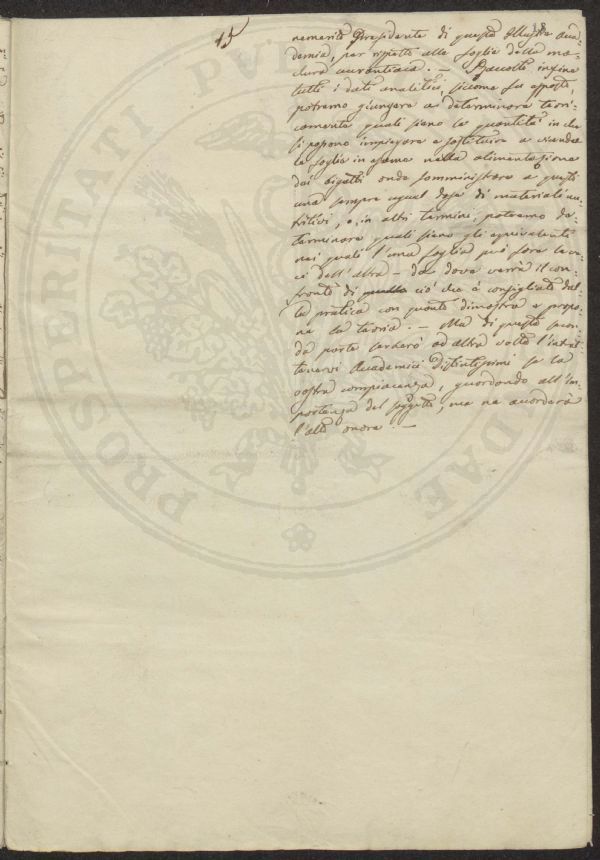 15
18
nemerito Presidente di questa Illustre Acca-
demia, per rispetto alle foglie della ma-
clura aurantiaca. — Raccolti infine
tutti i dati analitici, siccome fu esposto,
potremo giungere a determinare teori-
camente quali siano le quantità in che
si possono impiegare e sostituire a vicenda
le foglie in esame nella alimentazione
dei bigatti onde somministrare a questi
una sempre egual dose di materiali nu-
tritivi, o, in altri termini, potremo de-
terminare quali siano gli equivalenti
nei quali l'una foglia può fare le ve-
ci dell'altra — da dove verrà il con-
fronto di quello ciò che è consigliato dal-
la pratica con quanto dimostra e propo-
ne la teoria. — Ma di questa secon-
da parte serberò ad altra volta l'intrat-
tenervi Accademici Distintissimi se la
vostra compiacenza, guardando all'im-
portanza del soggetto, me ne accorderà
l'alto onore. —
PROSPERITATI PVBLICAE